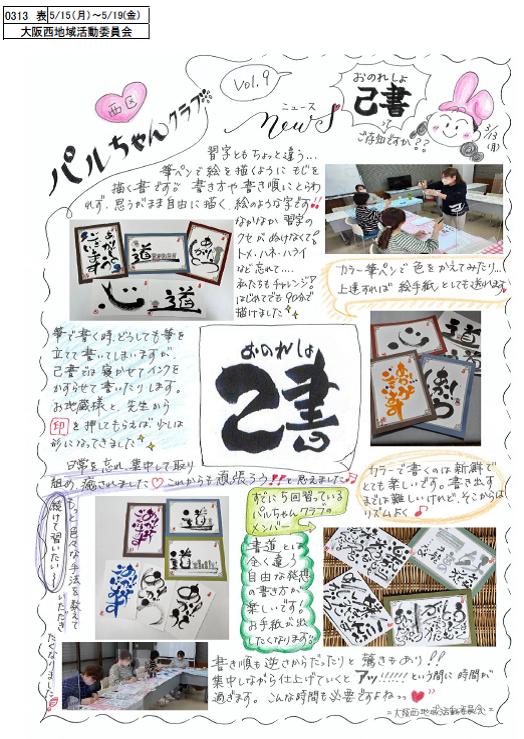 0313 表 5/15(月)～5/19(金)
大阪西地域活動委員会
西区
パルちゃんクラブ
Vol.9
ニュース
newS
おのれしょ
己書
って
ご存知ですか??
3/13
(月)
習字ともちょっと違う…
筆ペンで絵を描くようにもじを
描く書です。書き方や書き順にとらわ
れず、思うがまま自由に描く、絵のような字です!!
なかなか習字の
クセがぬけなくて
トメ・ハネ・ハライ
など忘れて…
あたたもチャレンジ♪
はじめてでも90分で
描けました
カラー筆ペンで色をかえてみたり…
上達すれば絵手紙としても送れます
筆で書く時、どうしても筆を
立てて書いてしまいますが、
己書では寝かせてインクを
かすらせて書いたりします。
お地蔵様と、先生から
印を押してもらえば少しは
形になってきました
おのれしょ
己書
日常を忘れ、集中して取り
組め、癒されました♡これからも頑張ろう!!と思えました♪
もっと色々な手法を教えて
いただき
続けて習いたい〜
たくなりました
カラーで書くのは新鮮で
とても楽しいです。書き出す
までは難しいけれど、そこからは
リズムよく♪
すでに5回習っている
パルちゃんクラブの
メンバー
書道とは
全く違う
自由な発想
の書き方が
楽しいです!
お手紙が出
したくなります。
書き順も逆さからだったりと驚きもあり!!
集中しながら仕上げていくとアッ!!!!!!という間に時間が
過ぎます。こんな時間も必要ですよね
=大阪西地域活動委員会=
ありがとう
ございます
道
心
道